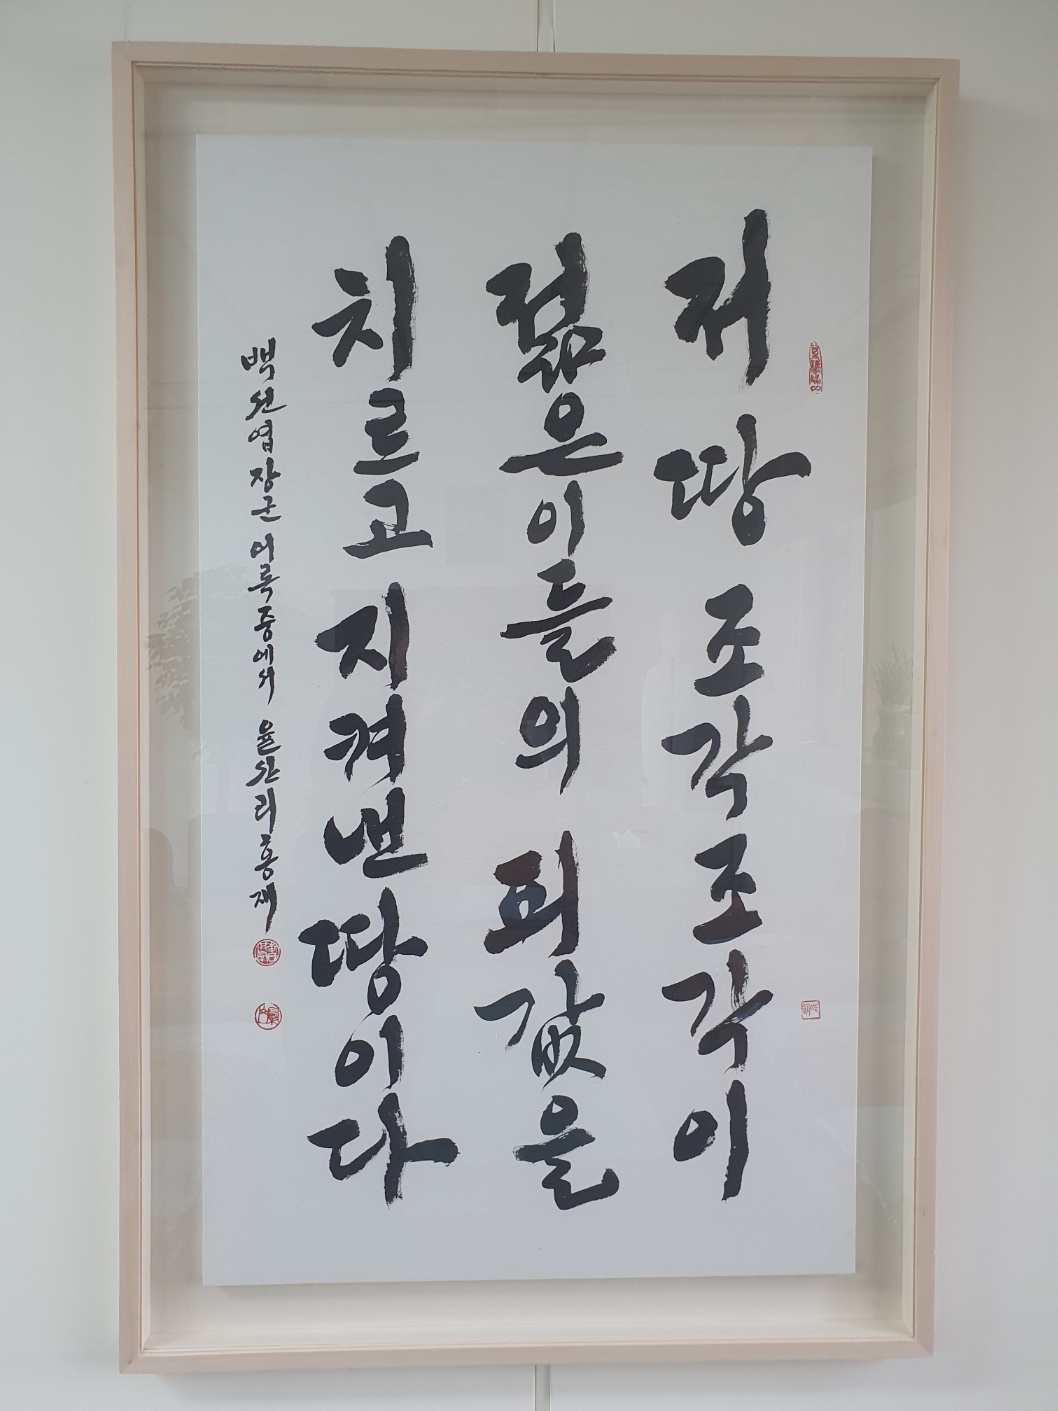 저 땅 조각조각이
젊은이들의 피값을
치르고 지켜낸 땅이다
백선엽장군 어록중에서 율산 리홍재